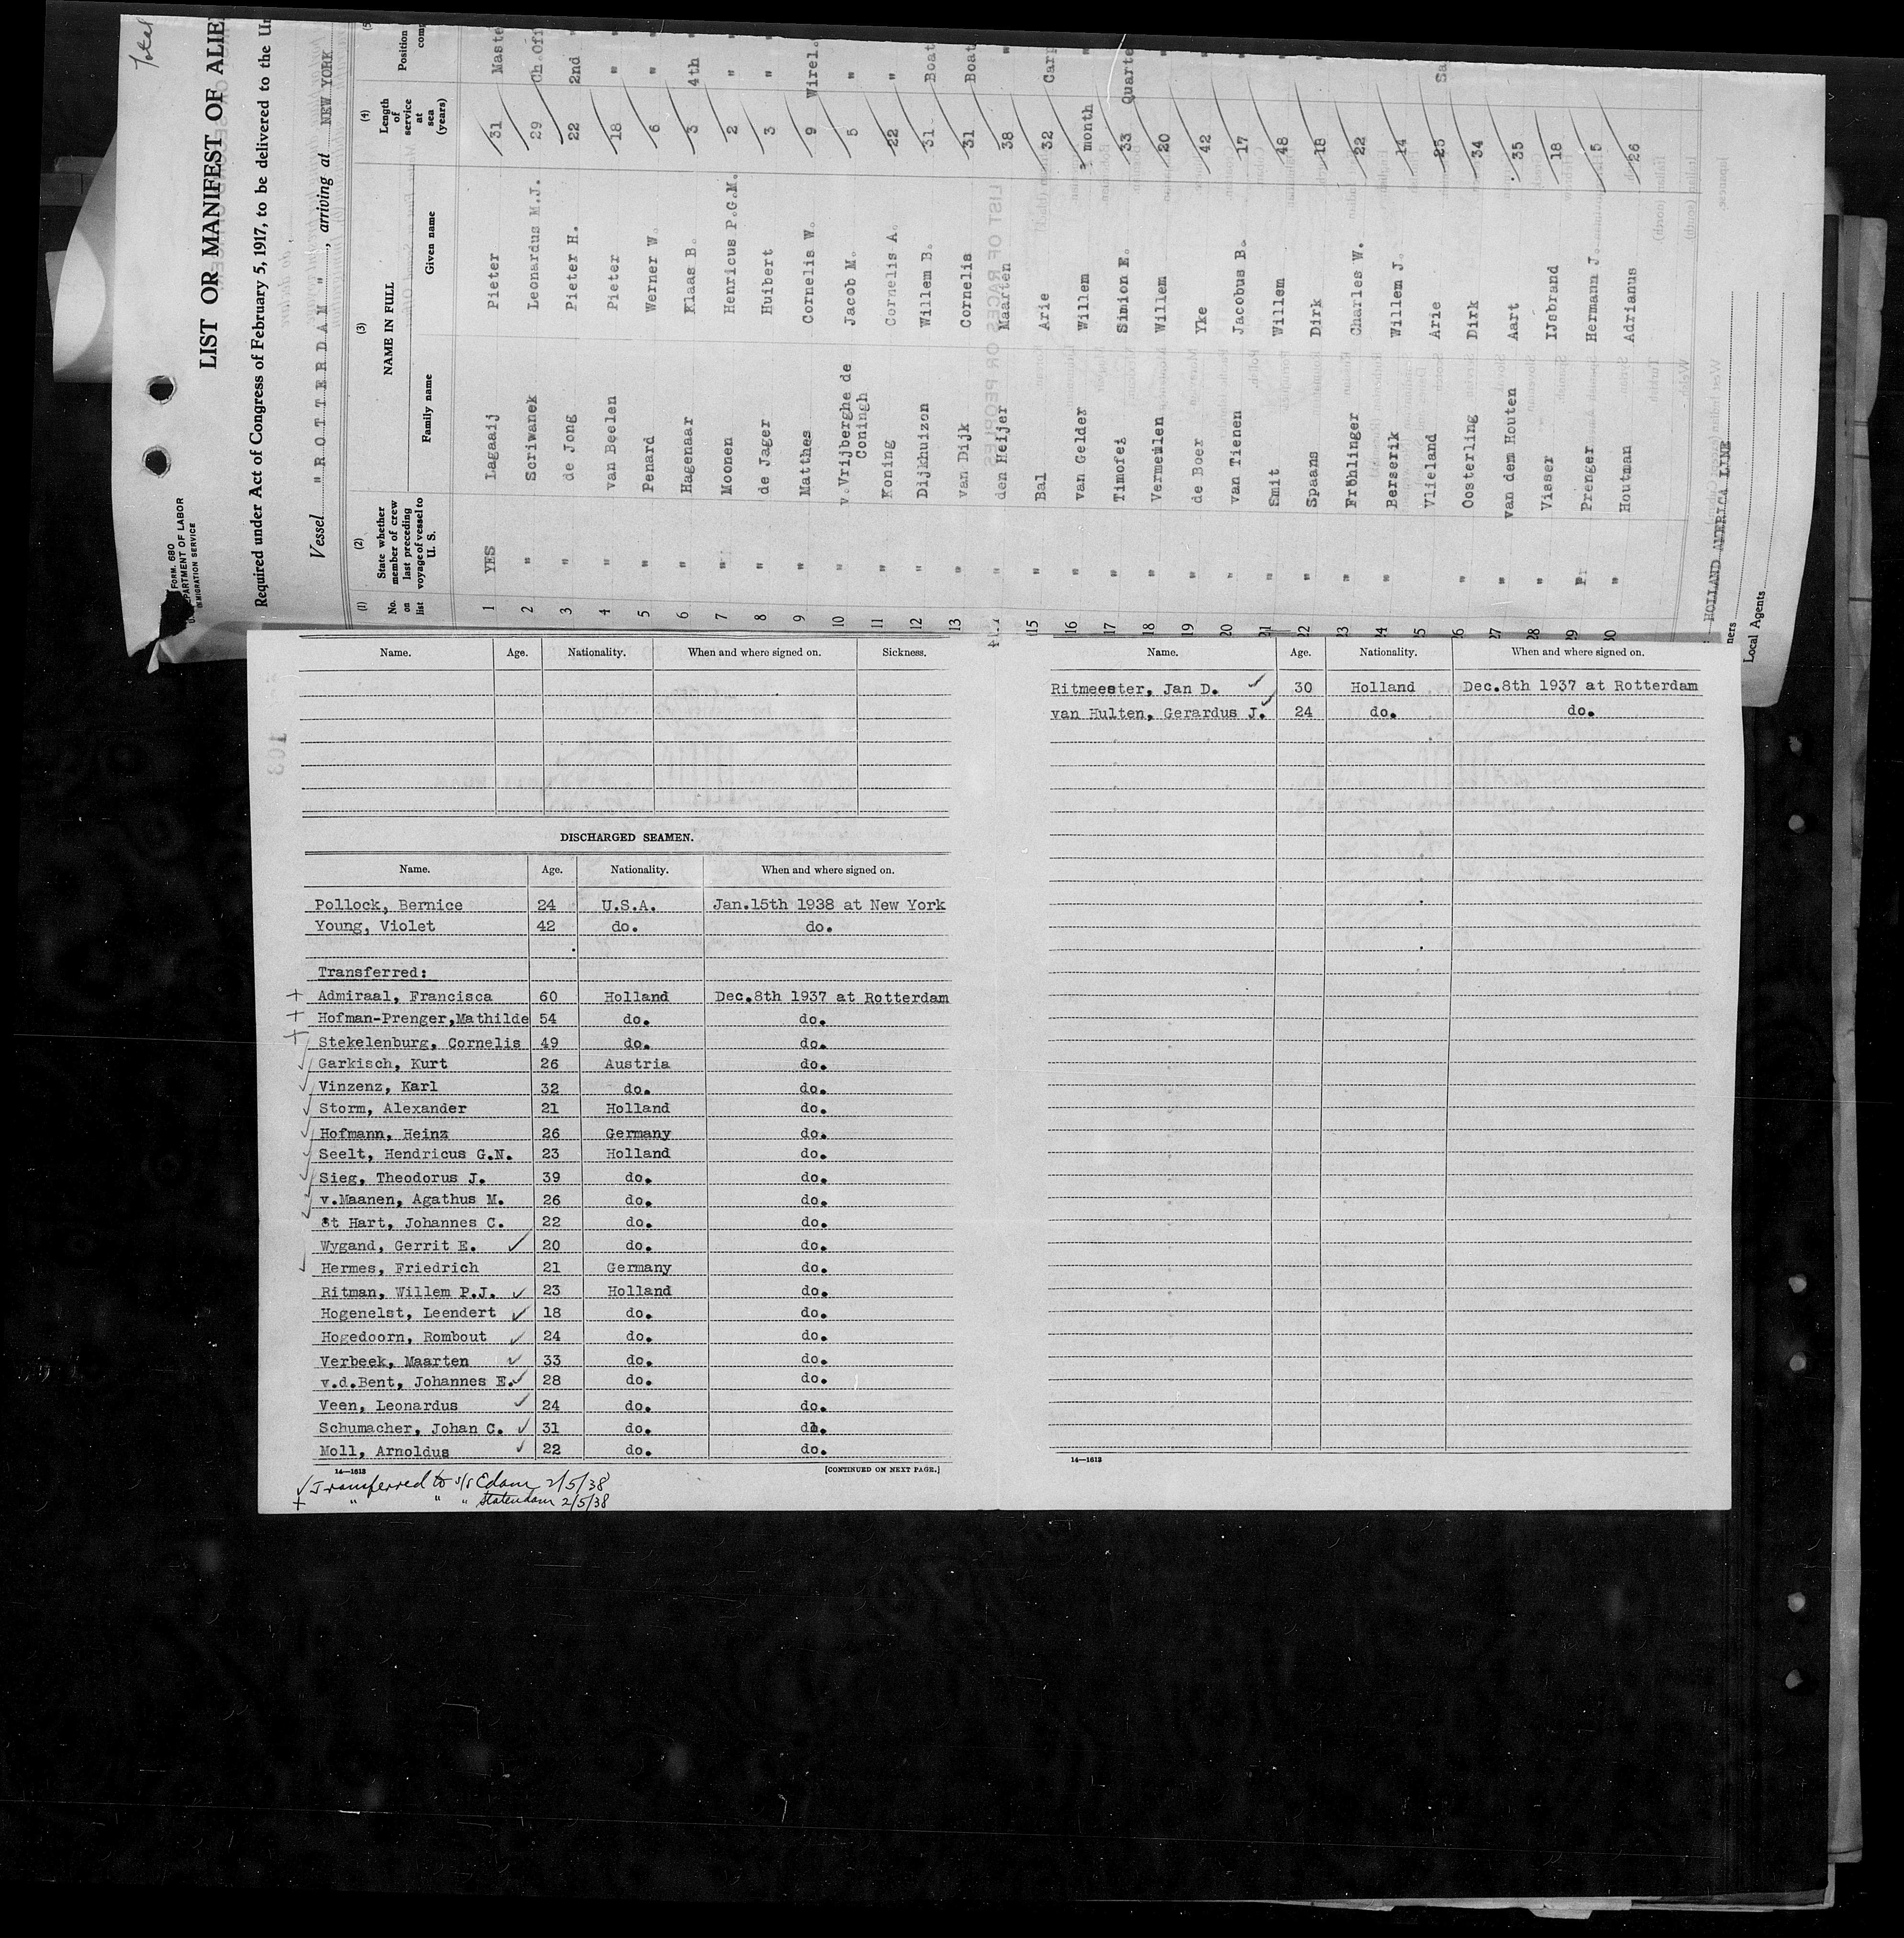 Total
LIST OR MANIFEST OF ALIE
Required under Act of Congress of February 5, 1917, to be delivered to the Un
Vessel "ROTTERDAM", arriving at NEW YORK
FORM 680
DEPARTMENT OF LABOR
IMMIGRATION SERVICE
(1) (2) (3) (4) (5
No. on list
State whether member of crew last preceding voyage of vessel to U. S.
NAME IN FULL
Family name Given name
Length of service at sea (years)
Position
1 YES Lagaaij Pieter 31 Maste
2 " Scriwanek Leonardus M.J. 29 Ch.Off
3 " de Jong Pieter H. 22 2nd "
4 " van Beelen Pieter 18 "
5 " Penard Werner W. 6 " "
6 " Hagenaar Klaas B. 3 4th "
7 " Moonen Henricus P.G.M. 2 " "
8 " de Jager Huibert 3 " "
9 " Matthes Cornelis W. 9 Wirel.
10 " v.Vrijberghe de Coningh Jacob M. 5 "
11 " Koning Cornelis A. 22 "
12 " Dijkhuizen Willem B. 31 Boat
13 " van Dijk Cornelis 31 Boat
14 " den Heijer Maarten 38 "
15 " Bal Arie 32 Carp
16 " van Gelder Willem month "
17 " Timofei Simion E. 33 Quarte
18 " Vermeulen Willem 20
19 " de Boer Yke 42
20 " van Tienen Jacobus B. 17
21 " Smit Willem 48
22 " Spaans Dirk 18
23 " Fröhlinger Charles W. 22
24 " Berserik Willem J. 14
5 Vlieland Arie 25 Sa
26 " Oosterling Dirk 34
27 " van dem Houten Aart 35
28 " Visser IJsbrand 18
29 Prenger Hermann J. 5
30 " Houtman Adrianus 26
HOLLAND AMERICA LINE
ners
Local Agents
Name. Age. Nationality. When and where signed on. Sickness.
DISCHARGED SEAMEN.
Name. Age. Nationality. When and where signed on.
Pollock, Bernice 24 U.S.A. Jan.15th 1938 at New York
Young, Violet 42 do. do.
Transferred:
+ Admiraal, Francisca 60 Holland Dec.8th 1937 at Rotterdam
+ Hofman-Prenger,Mathilde 54 do. do.
+ Stekelenburg, Cornelis 49 do. do.
✓ Garkisch, Kurt 26 Austria do.
✓ Vinzenz, Karl 32 do. do.
✓ Storm, Alexander 21 Holland do.
✓ Hofmann, Heinz 26 Germany do.
✓ Seelt, Hendricus G.N. 23 Holland do.
✓ Sieg, Theodorus J. 39 do. do.
✓ v.Maanen, Agathus M. 26 do. do.
✓ St Hart, Johannes C. 22 do. do.
Wygand, Gerrit E. ✓ 20 do. do.
✓ Hermes, Friedrich 21 Germany do.
Ritman, Willem P.J. ✓ 23 Holland do.
Hogenelst, Leendert ✓ 18 do. do.
Hogedoorn, Rombout ✓ 24 do. do.
Verbeek, Maarten ✓ 33 do. do.
v.d.Bent, Johannes E. ✓ 28 do. do.
Veen, Leonardus ✓ 24 do. do.
Schumacher, Johan C. ✓ 31 do. do.
Moll, Arnoldus ✓ 22 do. do.
14—1613 [CONTINUED ON NEXT PAGE.]
✓ Transferred to s/s Edam 2/5/38
+ " " " Statendam 2/5/38
Name. Age. Nationality. When and where signed on.
Ritmeester, Jan D. ✓ 30 Holland Dec.8th 1937 at Rotterdam
van Hulten, Gerardus J. ✓ 24 do. do.
14—1613